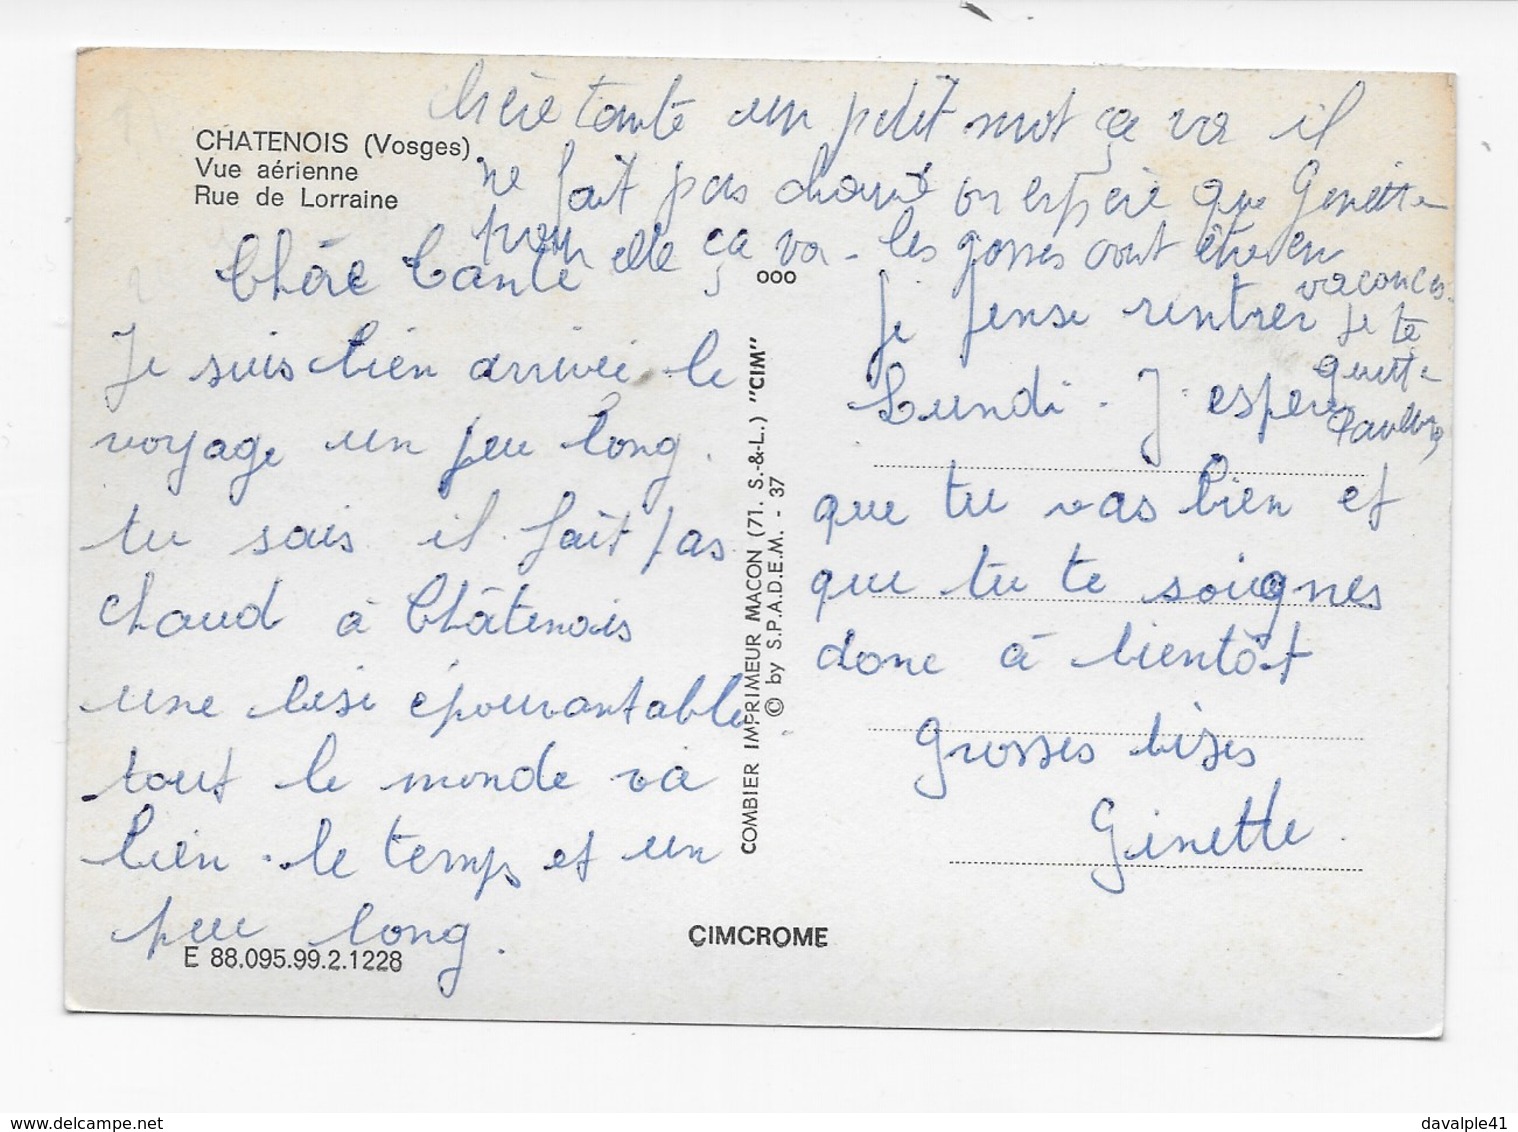 Chère tante un petit mot ça va il
ne fait pas chaud on espère que Ginette
pour elle ça va - les gosses vont être en
vacances.
Je te
quitte
CHATENOIS (Vosges)
Vue aérienne
Rue de Lorraine
Chère Tante
Je suis bien arrivée le
voyage un peu long.
tu sais il fait pas
chaud à Châtenois
une bise épouvantable
tout le monde va
bien. le temps et un
peu long.
E 88.095.99.2.1228
OOO
COMBIER IMPRIMEUR MACON (71. S.-&-L.) "CIM"
© by S.P.A.D.E.M. - 37
CIMCROME
Je pense rentrer
Lundi. J'espère
que tu vas bien et
que tu te soignes
donc à bientôt
Grosses bises
Ginette.
www.delcampe.net
davalple41